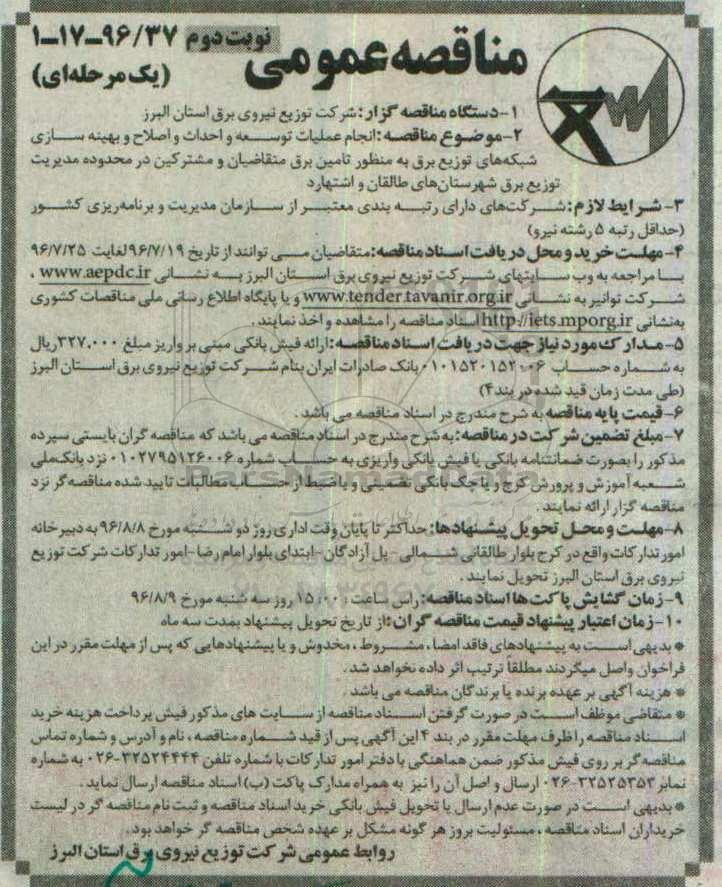 مناقصه عمومی
نوبت دوم ۹۶/۳۷-۱۷-۱
(یک مرحله‌ای)
۱- دستگاه مناقصه گزار: شرکت توزیع نیروی برق استان البرز
۲- موضوع مناقصه: انجام عملیات توسعه و احداث و اصلاح و بهینه سازی
شبکه‌های توزیع برق به منظور تامین برق متقاضیان و مشترکین در محدوده مدیریت
توزیع برق شهرستان‌های طالقان و اشتهارد
۳- شرایط لازم: شرکت‌های دارای رتبه بندی معتبر از سازمان مدیریت و برنامه‌ریزی کشور
(حداقل رتبه ۵ رشته نیرو)
۴- مهلت خرید و محل دریافت اسناد مناقصه: متقاضیان می توانند از تاریخ ۹۶/۷/۱۹ لغایت ۹۶/۷/۲۵
با مراجعه به وب سایتهای شرکت توزیع نیروی برق استان البرز به نشانی www.aepdc.ir ،
شرکت توانیر به نشانی www.tender.tavanir.org.ir و یا پایگاه اطلاع رسانی ملی مناقصات کشوری
به‌نشانی http://iets.mporg.ir اسناد مناقصه را مشاهده و اخذ نمایند.
۵- مدارک مورد نیاز جهت دریافت اسناد مناقصه: ارائه فیش بانکی مبنی بر واریز مبلغ ۳۲۷,۰۰۰ ریال
به شماره حساب ۰۱۰۱۵۲۰۱۵۲۰۰۶ بانک صادرات ایران بنام شرکت توزیع نیروی برق استان البرز
(طی مدت زمان قید شده در بند ۴)
۶- قیمت پایه مناقصه به شرح مندرج در اسناد مناقصه می باشد.
۷- مبلغ تضمین شرکت در مناقصه: به شرح مندرج در اسناد مناقصه می باشد که مناقصه گران بایستی سپرده
مذکور را بصورت ضمانتنامه بانکی یا فیش بانکی واریزی به حساب شماره ۰۱۰۲۷۹۵۱۲۶۰۰۶ نزد بانک ملی
شعبه آموزش و پرورش کرج و یا چک بانکی تضمینی و یا ضبط از حساب مطالبات تایید شده مناقصه گر نزد
مناقصه گزار ارائه نمایند.
۸- مهلت و محل تحویل پیشنهادها: حداکثر تا پایان وقت اداری روز دو شنبه مورخ ۹۶/۸/۸ به دبیر خانه
امور تدارکات واقع در کرج بلوار طالقانی شمالی- پل آزادگان- ابتدای بلوار امام رضا- امور تدارکات شرکت توزیع
نیروی برق استان البرز تحویل نمایند.
۹- زمان گشایش پاکت ها اسناد مناقصه: راس ساعت ۱۵:۰۰ روز سه شنبه مورخ ۹۶/۸/۹
۱۰- زمان اعتبار پیشنهاد قیمت مناقصه گران: از تاریخ تحویل پیشنهاد بمدت سه ماه
* بدیهی است به پیشنهادهای فاقد امضا، مشروط، مخدوش و یا پیشنهادهایی که پس از مهلت مقرر در این
فراخوان واصل میگردند مطلقاً ترتیب اثر داده نخواهد شد.
* هزینه آگهی بر عهده برنده یا برندگان مناقصه می باشد.
* متقاضی موظف است در صورت گرفتن اسناد مناقصه از سایت های مذکور فیش پرداخت هزینه خرید
اسناد مناقصه را ظرف مهلت مقرر در بند ۴ این آگهی پس از قید شماره مناقصه، نام و آدرس و شماره تماس
مناقصه گر بر روی فیش مذکور ضمن هماهنگی با دفتر امور تدارکات با شماره تلفن ۳۲۵۲۴۴۴۴-۰۲۶ به شماره
نمابر ۳۲۵۲۵۳۵۳-۰۲۶ ارسال و اصل آن را نیز به همراه مدارک پاکت (ب) اسناد مناقصه ارسال نماید.
* بدیهی است در صورت عدم ارسال یا تحویل فیش بانکی خرید اسناد مناقصه و ثبت نام مناقصه گر در لیست
خریداران اسناد مناقصه، مسئولیت بروز هر گونه مشکل بر عهده شخص مناقصه گر خواهد بود.
روابط عمومی شرکت توزیع نیروی برق استان البرز